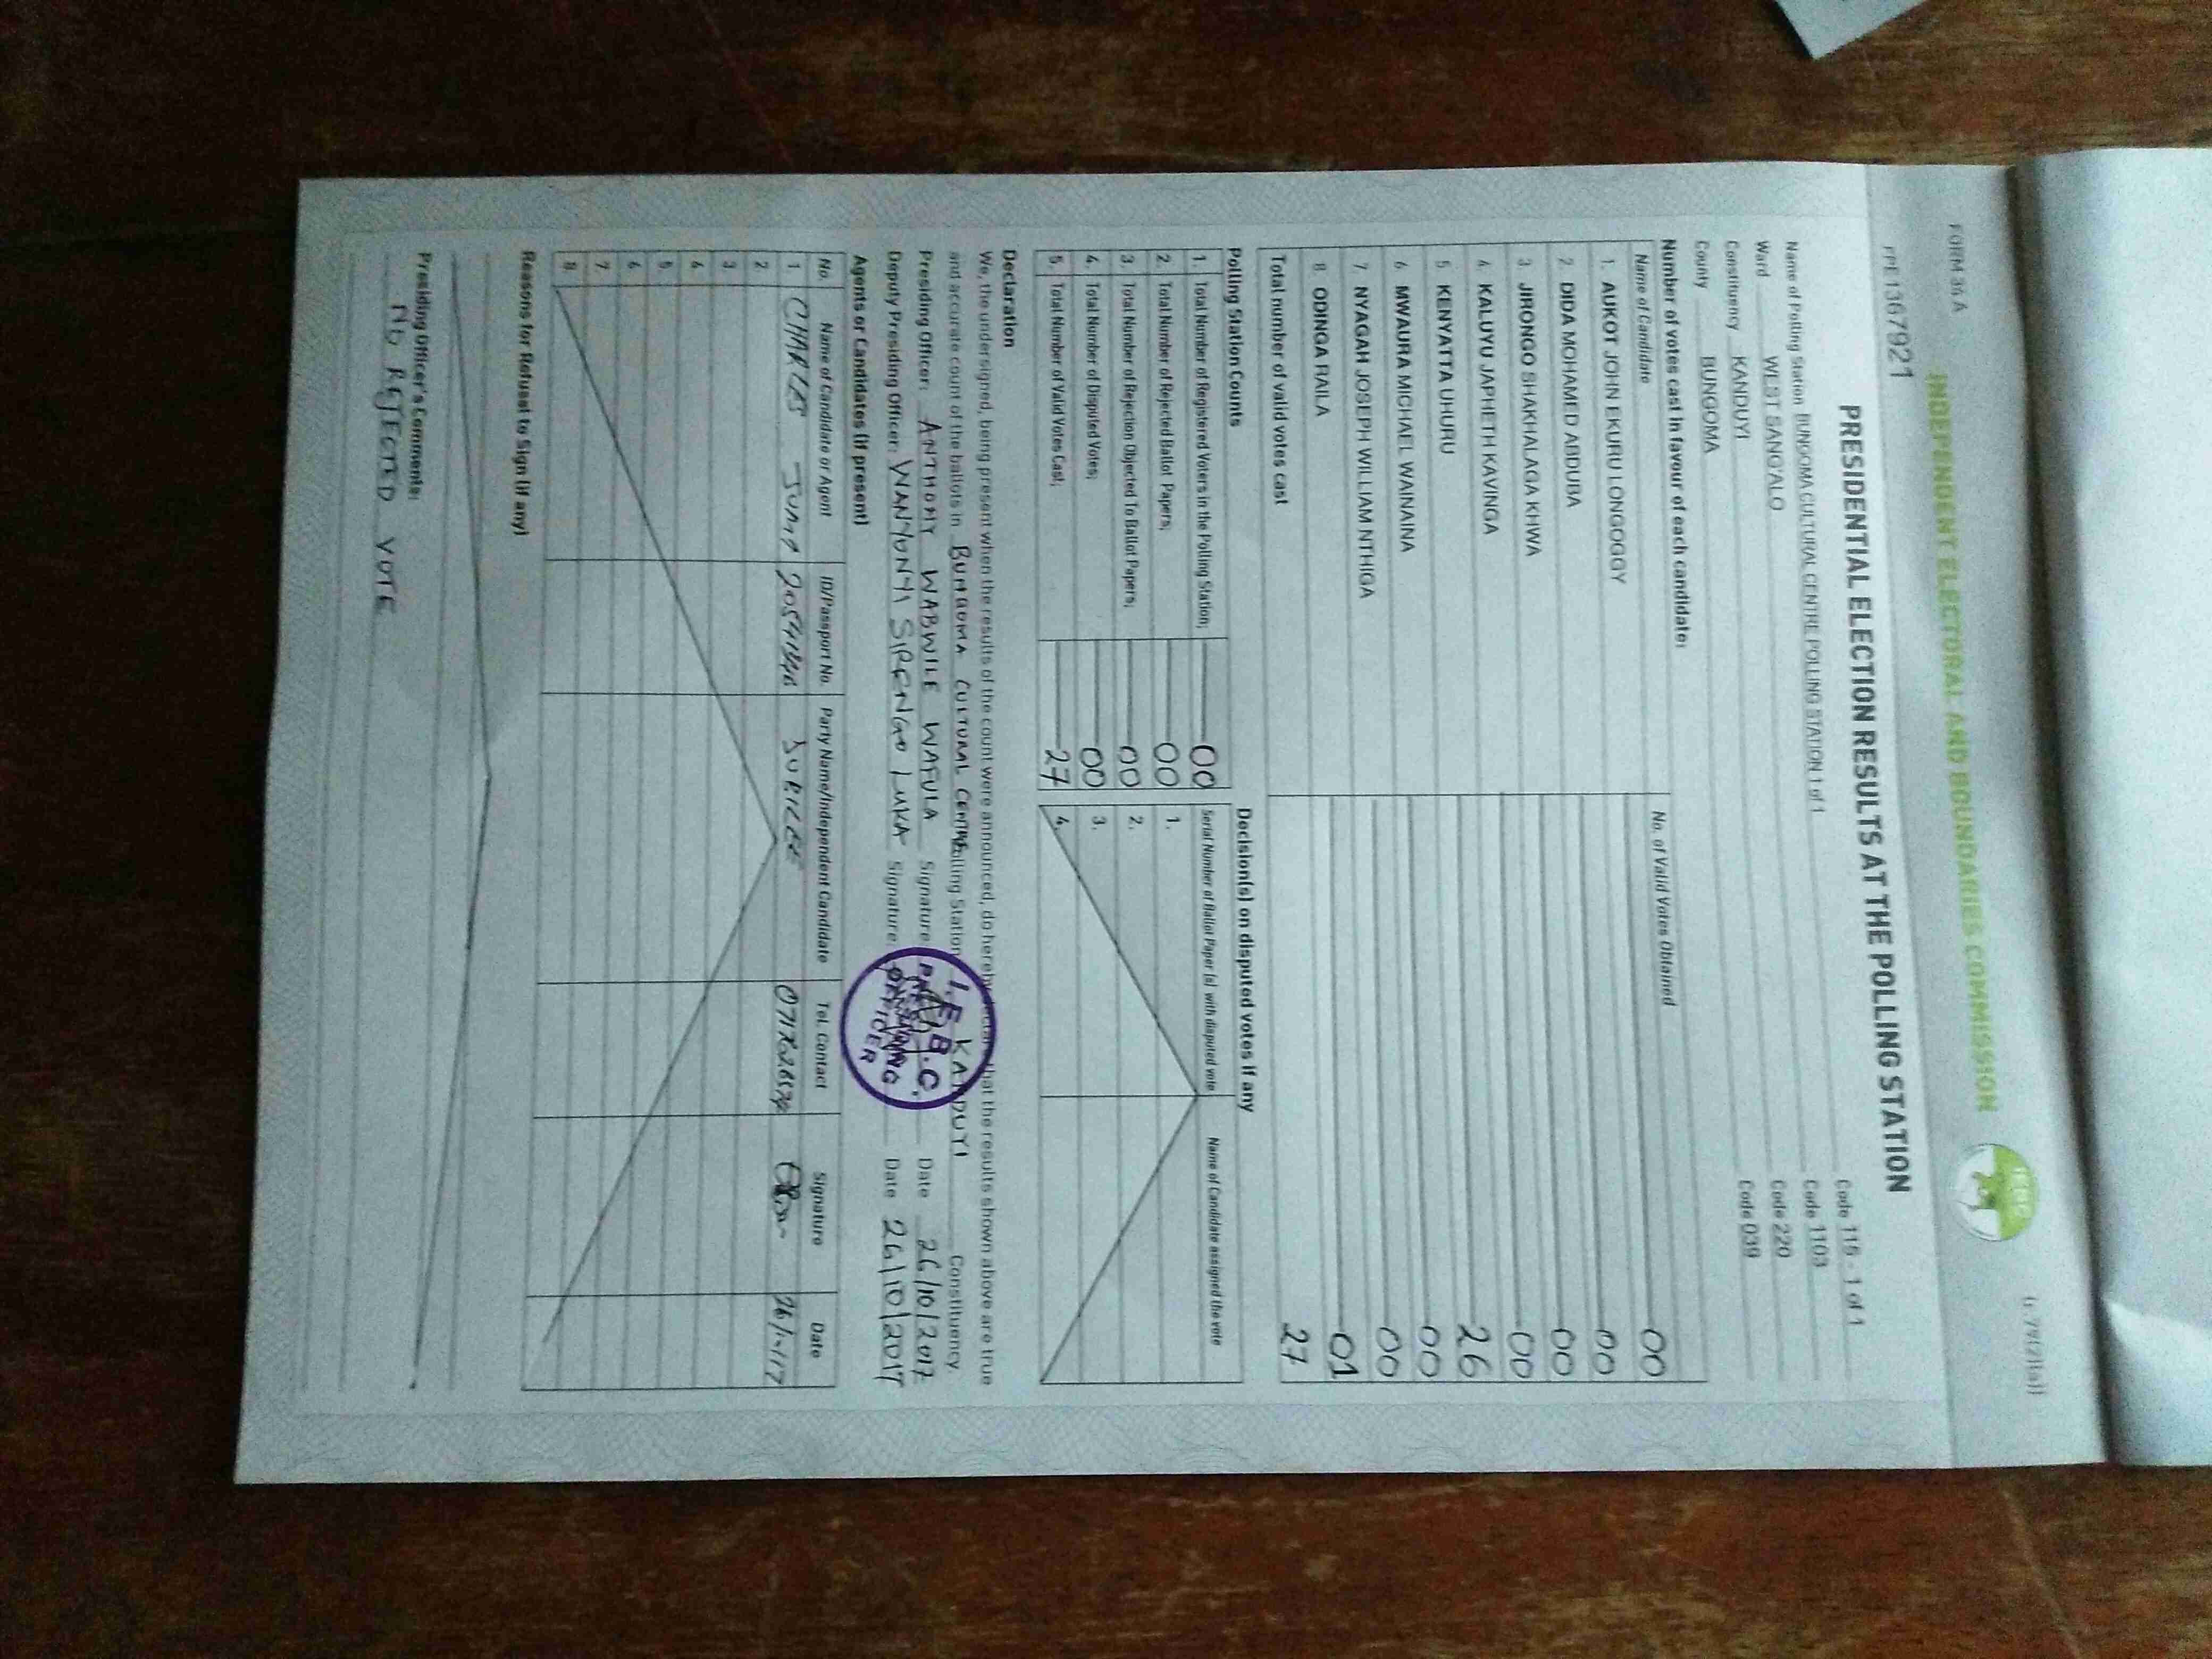 FORM 34 A
INDEPENDENT ELECTORAL AND BOUNDARIES COMMISSION
IEBC
PRE 1367921
PRESIDENTIAL ELECTION RESULTS AT THE POLLING STATION
Name of Polling Station BUNGOMA CULTURAL CENTRE POLLING STATION 1 of 1 Code 115 - 1 of 1
Ward WEST SANG'ALO Code 1103
Constituency KANDUYI Code 220
County BUNGOMA Code 039
Number of votes cast in favour of each candidate:
Name of Candidate No. of Valid Votes Obtained
1. AUKOT JOHN EKURU LONGOGGY 00
2. DIDA MOHAMED ABDUBA 00
3. JIRONGO SHAKHALAGA KHWA 00
4. KALUYU JAPHETH KAVINGA 00
5 KENYATTA UHURU 26
6 MWAURA MICHAEL WAINAINA 00
7 NYAGAH JOSEPH WILLIAM NTHIGA 00
8 ODINGA RAILA 01
Total number of valid votes cast 27
Polling Station Counts
1. Total Number of Registered Voters in the Polling Station; 00
2. Total Number of Rejected Ballot Papers; 00
3. Total Number of Rejection Objected To Ballot Papers; 00
4. Total Number of Disputed Votes; 00
5. Total Number of Valid Votes Cast; 27
Decision(s) on disputed votes if any
Serial Number of Ballot Paper (s) with disputed vote Name of Candidate assigned the vote
1.
2.
3.
4.
Declaration
We, the undersigned, being present when the results of the count were announced, do hereby declare that the results shown above are true
and accurate count of the ballots in BUNGOMA CULTURAL CENTRE Polling Station KANDUYI Constituency.
Presiding Officer: ANTHONY WABWILE WAFULA Signature Date 26/10/2017
Deputy Presiding Officer: WANYONYI SIRENGO LUKA Signature: Date 26/10/2017
I.E.B.C.
PRESIDING
OFFICER
Agents or Candidates (if present)
No. Name of Candidate or Agent ID/Passport No. Party Name/Independent Candidate Tel. Contact Signature Date
1 CHARLES JUMA JUBILEE 26/10/17
2
3
4
5
6
7.
8.
Reasons for Refusal to Sign (if any)
Presiding Officer's Comments:
NO REJECTED VOTE